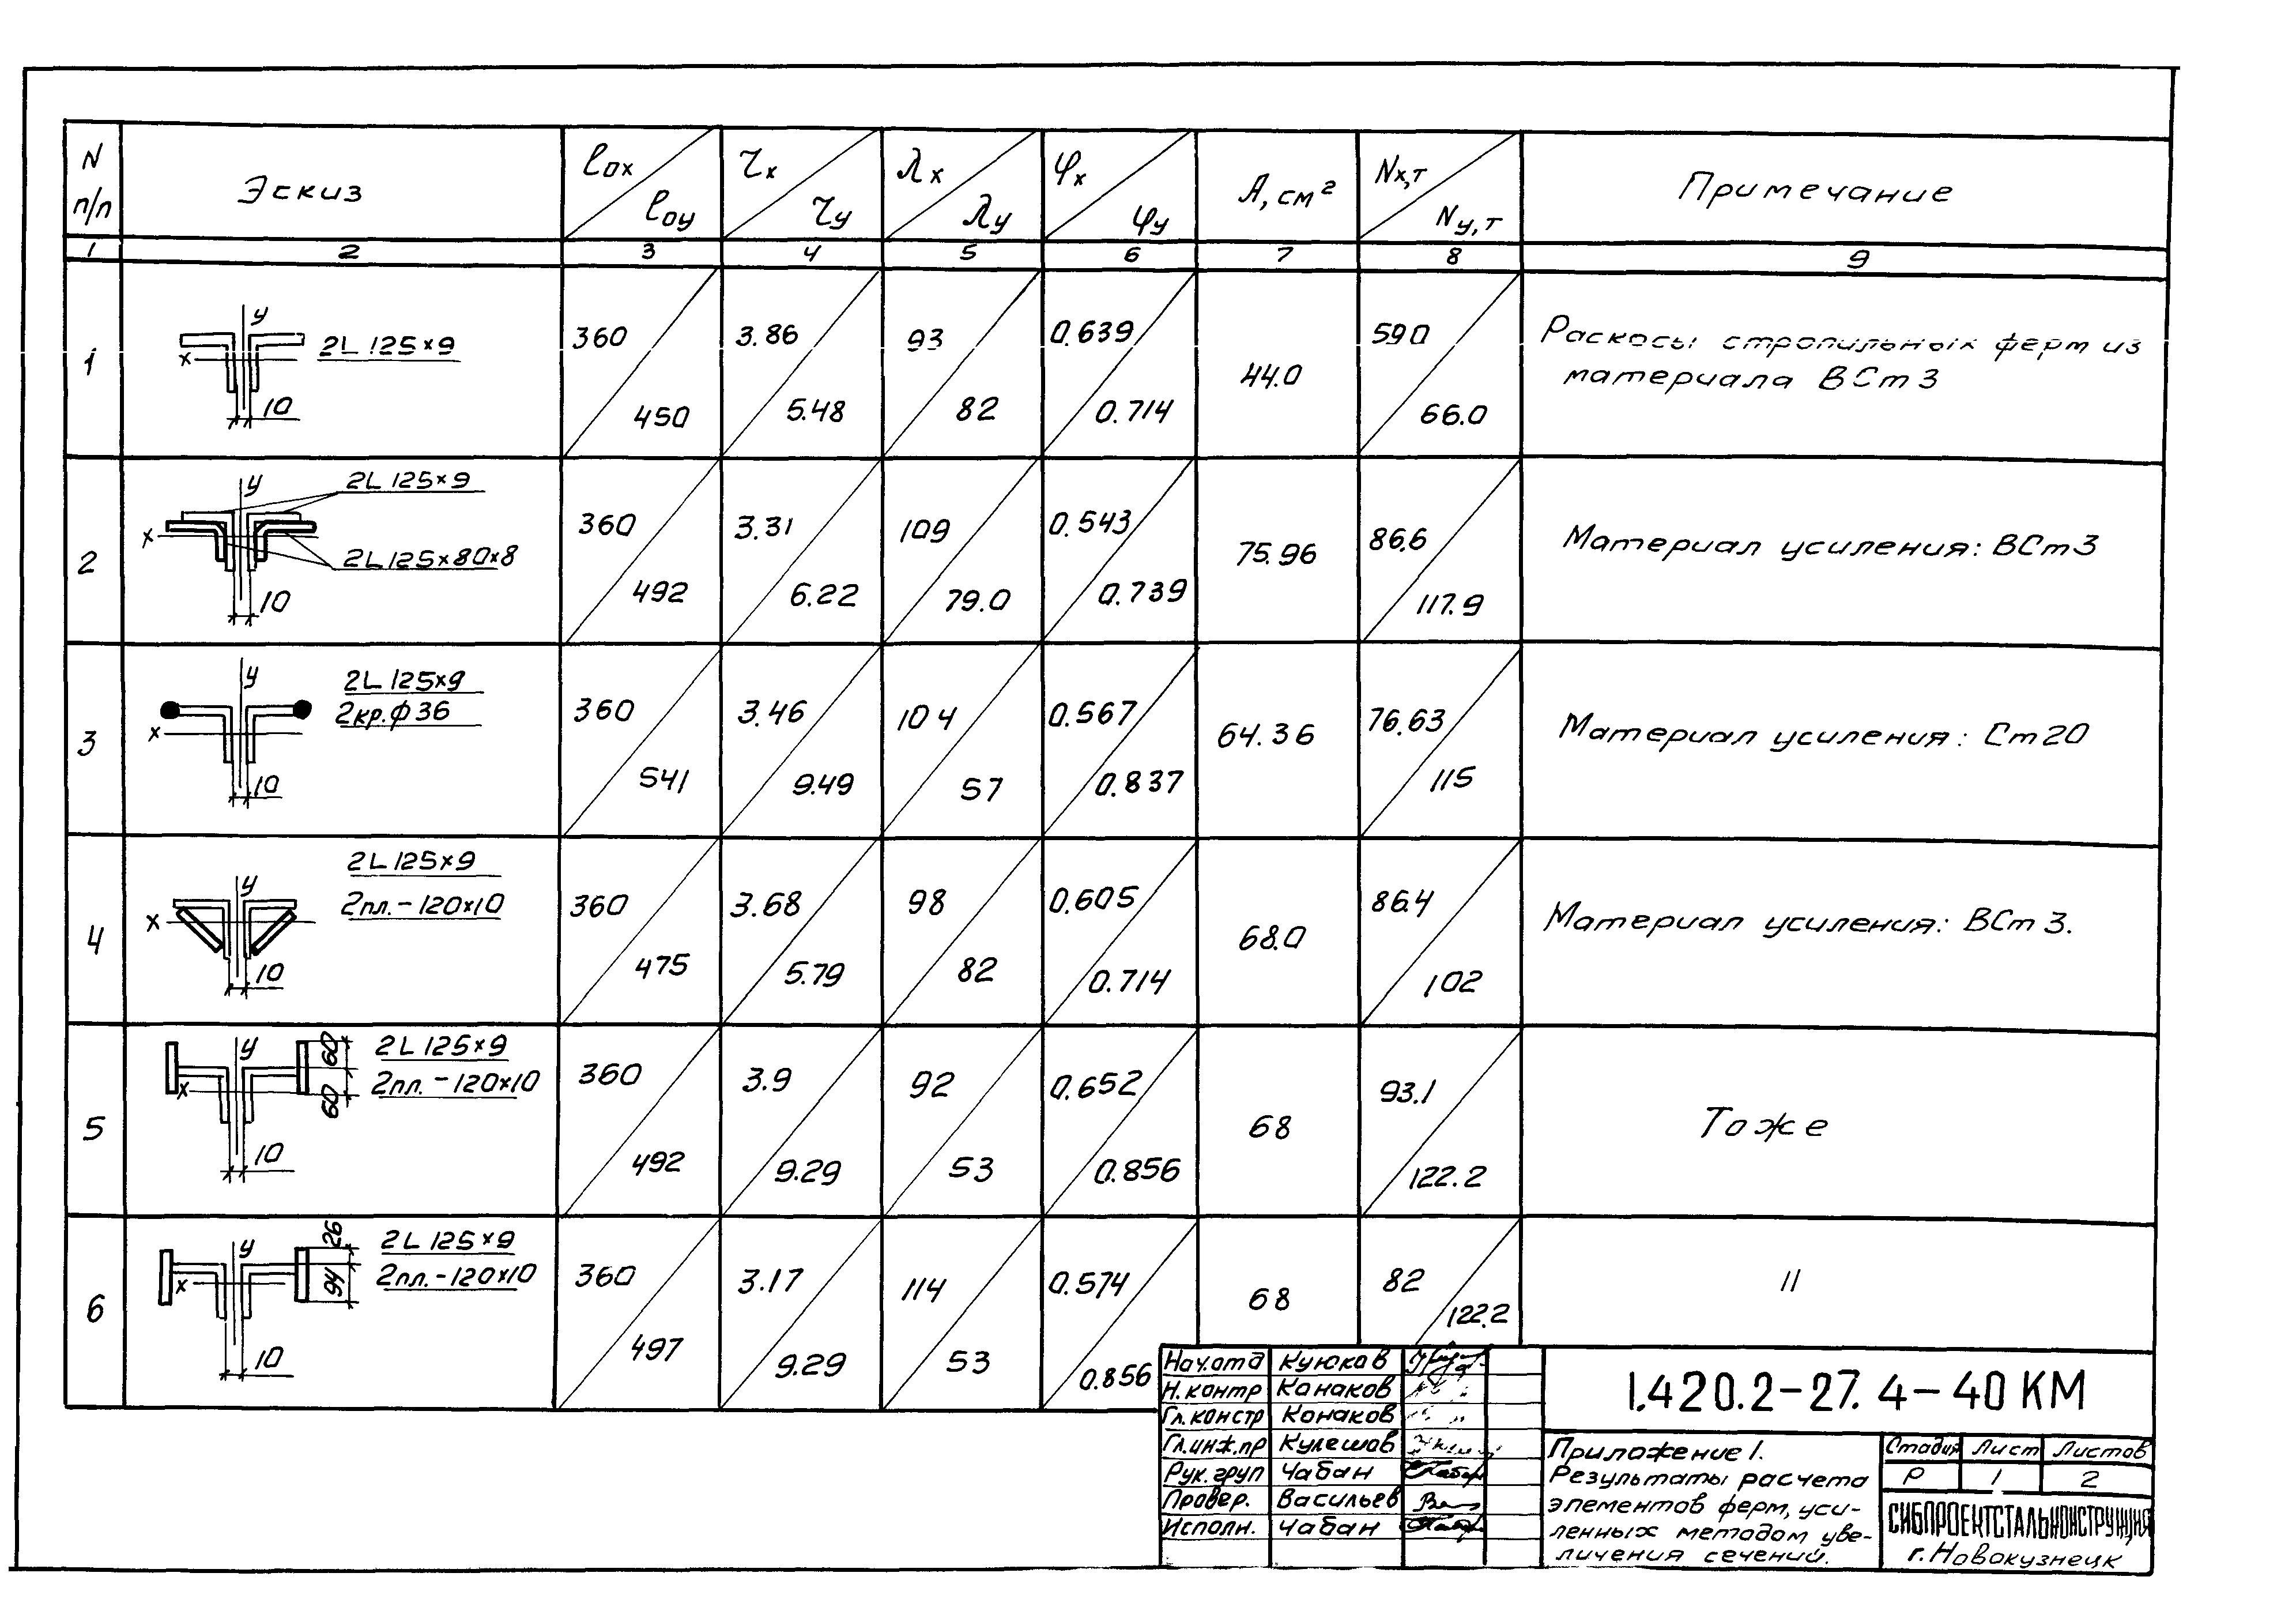 N п/п Эскиз lох lоу τх τу λх λу φх φу А, см² Nх,т Nу,т Примечание
1 2 3 4 5 6 7 8 9
1 у х 2L 125×9 10 360 450 3.86 5.48 93 82 0.639 0.714 44.0 590 66.0 Раскосы стропильных ферм из
материала ВСт3
2 у х 2L 125×9 2L 125×80×8 10 360 492 3.31 6.22 109 79.0 0.543 0.739 75.96 86.6 117.9 Материал усиления: ВСт3
3 у х 2L 125×9 2кр.ф36 10 360 541 3.46 9.49 104 57 0.567 0.837 64.36 76.63 115 Материал усиления: Ст20
4 у х 2L 125×9 2пл.-120×10 10 360 475 3.68 5.79 98 82 0.605 0.714 68.0 86.4 102 Материал усиления: ВСт3.
5 у х 60 60 2L 125×9 2пл.-120×10 10 360 492 3.9 9.29 92 53 0.652 0.856 68 93.1 122.2 Тоже
6 у х 26 94 2L 125×9 2пл.-120×10 10 360 497 3.17 9.29 114 53 0.574 0.856 68 82 122.2 "
Нач.отд Куюков
Н.контр Канаков
Гл.констр Конаков
Гл.инж.пр Кулешов
Рук.груп Чабан
Провер. Васильев
Исполн. Чабан
1.420.2-27.4-40 КМ
Приложение 1.
Результаты расчета
элементов ферм, уси-
ленных методом уве-
личения сечений.
Стадия Лист Листов
Р 1 2
СИБПРОЕКТСТАЛЬКОНСТРУКЦИЯ
г.Новокузнецк